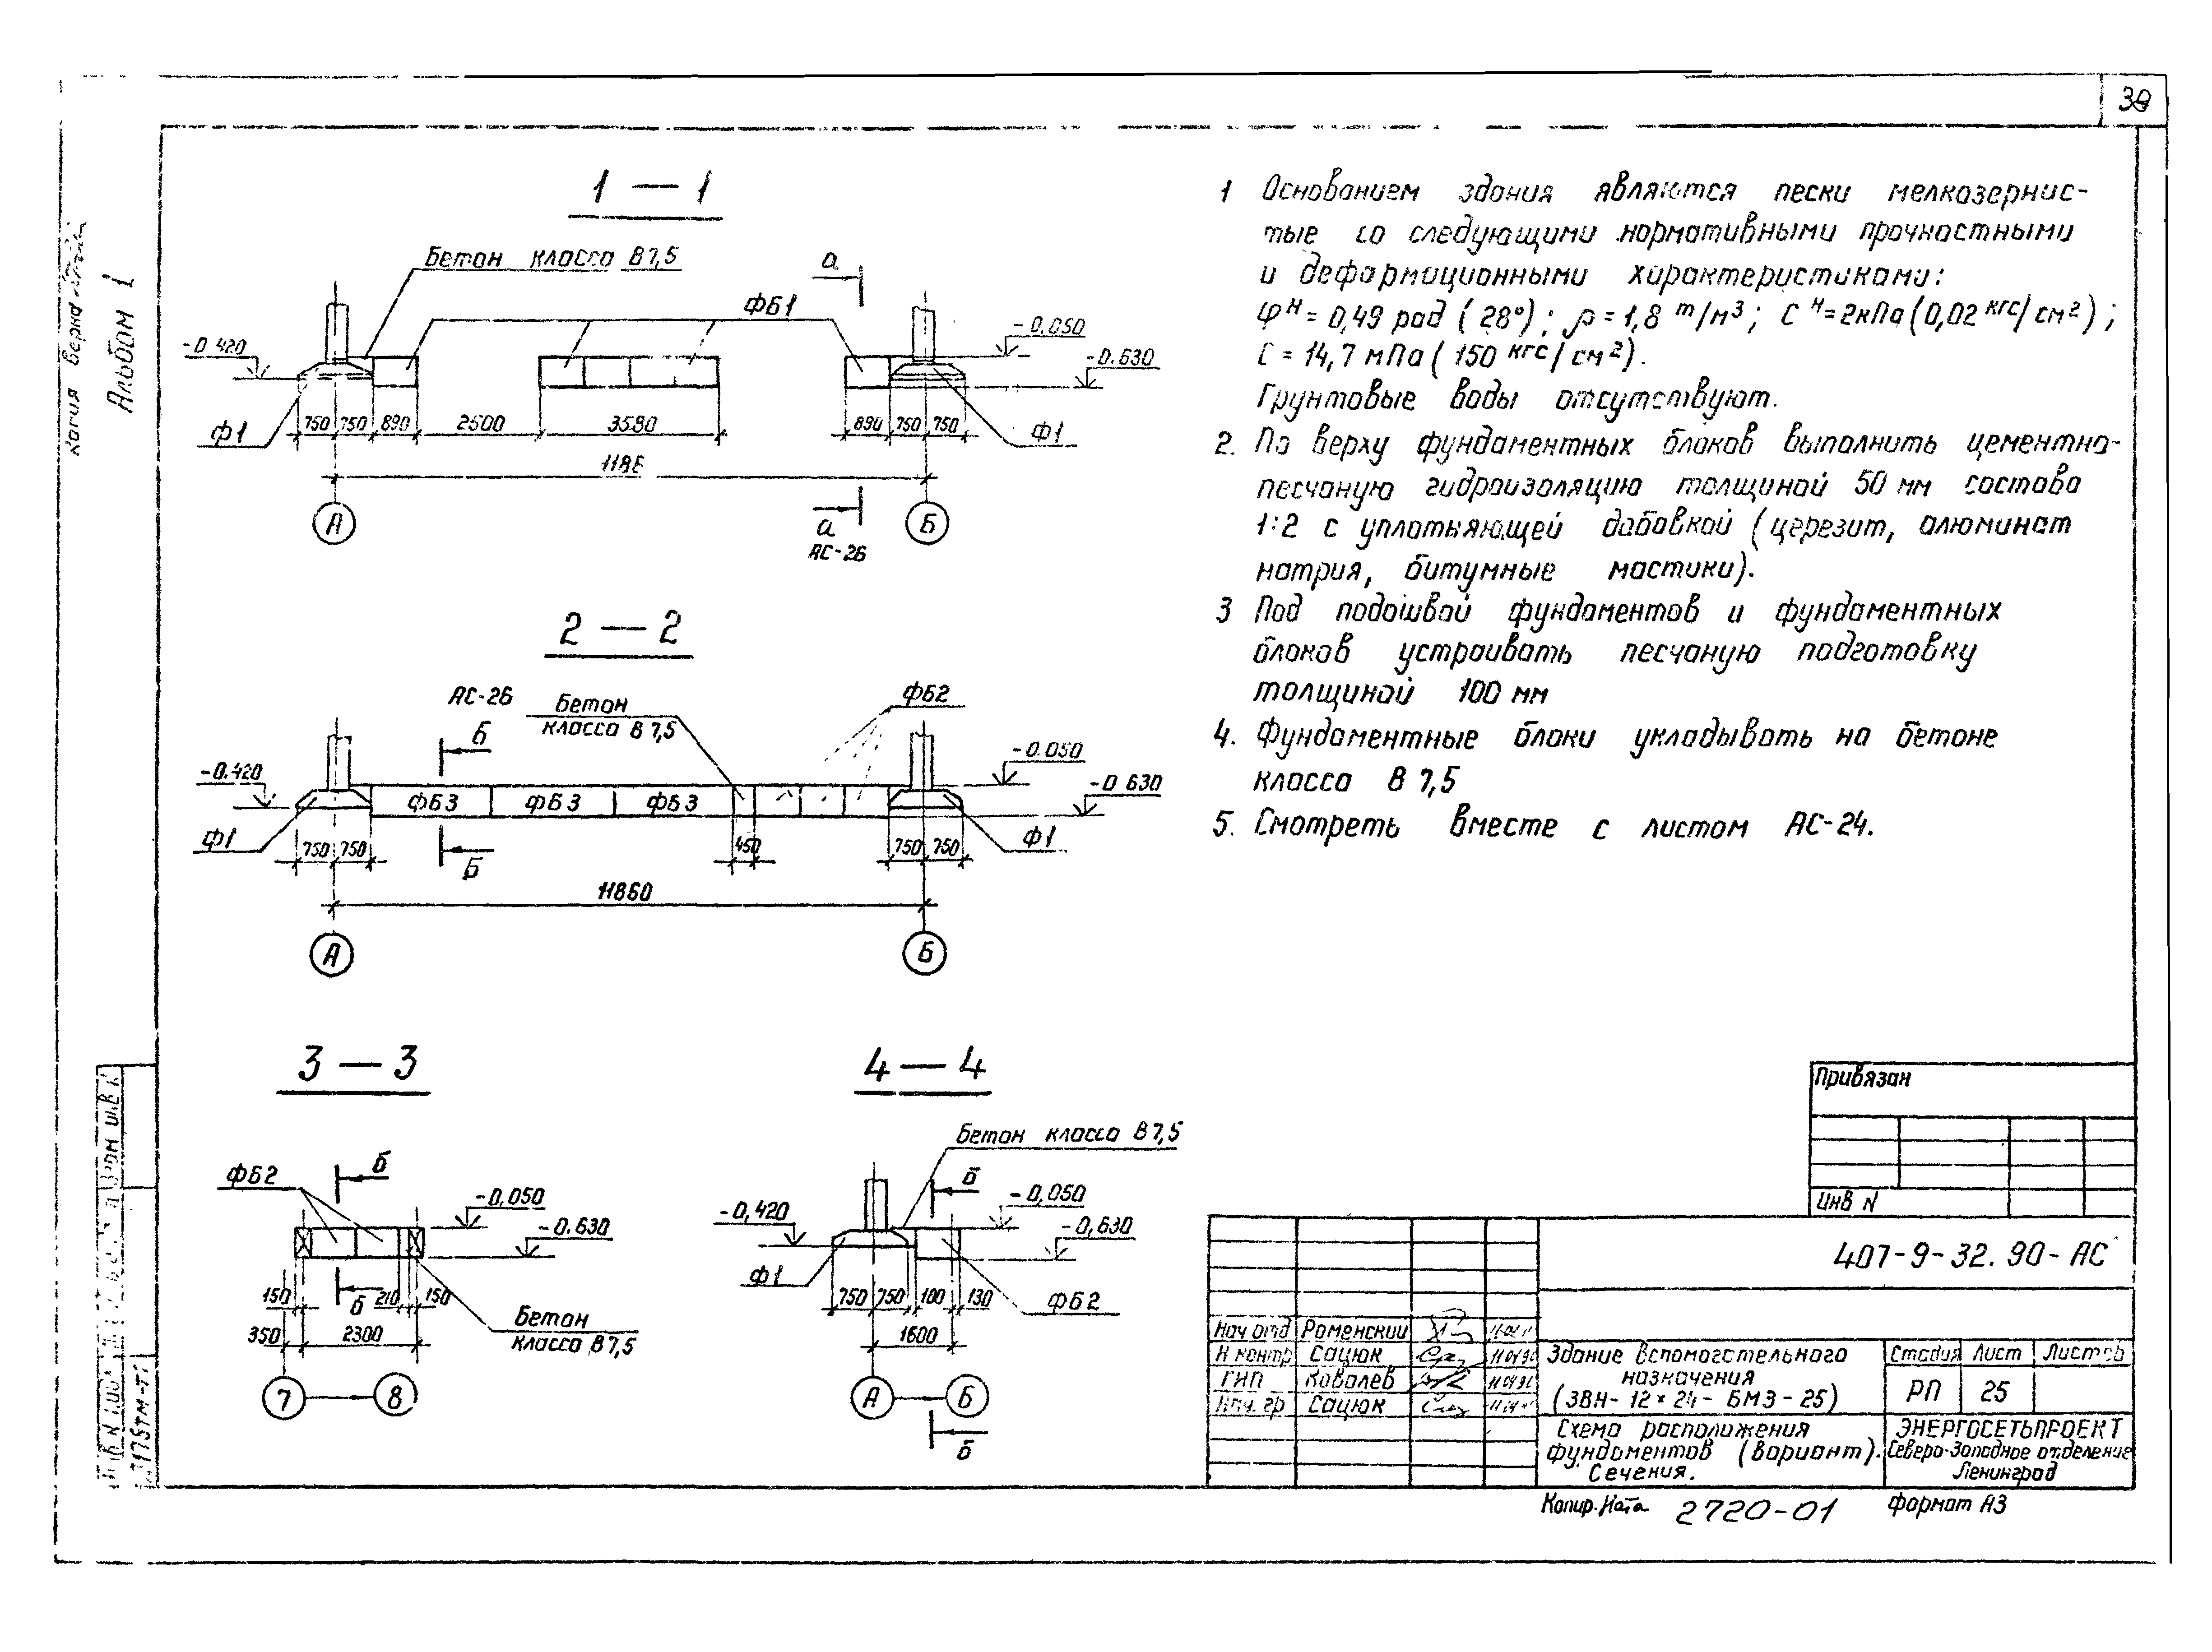 38
копия верна
Альбом 1
1 — 1
Бетон класса В 7,5
а
ФБ1
-0.420
-0,050
-0.630
Ф1
750 750 890 2500 3590 890 750 750
Ф1
А
а
Б
АС-26
2 — 2
АС-26
Бетон
класса В 7,5
ФБ2
Б
-0.420
-0.050
-0 630
ФБ3 ФБ3 ФБ3
Ф1
750 750
Б
450
750 750
Ф1
11860
А
Б
3 — 3
ФБ2
б
-0,050
-0.630
150
б
210 150
350 2300
Бетон
класса В 7,5
7
8
4 — 4
Бетон класса В 7,5
б
-0,420
-0,050
-0,630
Ф1
750 750 100 130
ФБ2
1600
А
Б
б
1 Основанием здания являются пески мелкозернис-
тые со следующими нормативными прочностными
и деформационными характеристиками:
φᴴ = 0,49 рад (28°); ρ = 1,8 т/м³; Cᴴ = 2кПа (0,02 кгс/см²);
= 14,7 мПа (150 кгс/см²).
Грунтовые воды отсутствуют.
2. По верху фундаментных блоков выполнить цементно-
песчаную гидроизоляцию толщиной 50 мм состава
1:2 с уплотняющей добавкой (церезит, алюминат
натрия, битумные мастики).
3 Под подошвой фундаментов и фундаментных
блоков устраивать песчаную подготовку
толщиной 100 мм
4. Фундаментные блоки укладывать на бетоне
класса В 7,5
5. Смотреть вместе с листом АС-24.
Привязан
Инв N
407-9-32.90-АС
Нач отд Роменский
Н контр Сацюк
ГИП Ковалев
Нач. гр Сацюк
Здание вспомогательного
назначения
(ЗВН-12×24-БМЗ-25)
Стадия Лист Листов
РП 25
Схема расположения
фундаментов (вариант).
Сечения.
ЭНЕРГОСЕТЬПРОЕКТ
Северо-Западное отделение
Ленинград
Копир. Ната 2720-01 формат А3